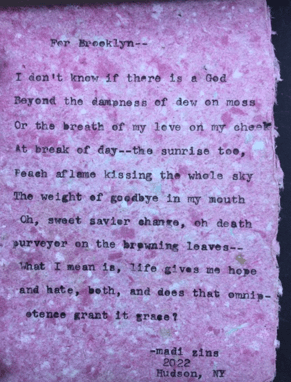 For Brooklyn--
I don't know if there is a God
Beyond the dampness of dew on moss
Or the breath of my love on my cheek
At break of day--the sunrise too,
Peach aflame kissing the whole sky
The weight of goodbye in my mouth
Oh, sweet savier change, oh death
purveyor on the browning leaves--
What I mean is, life gives me hope
and hate, both, and does that omnip-
otence grant it grace?
-madi zins
2022
Hudson, NY